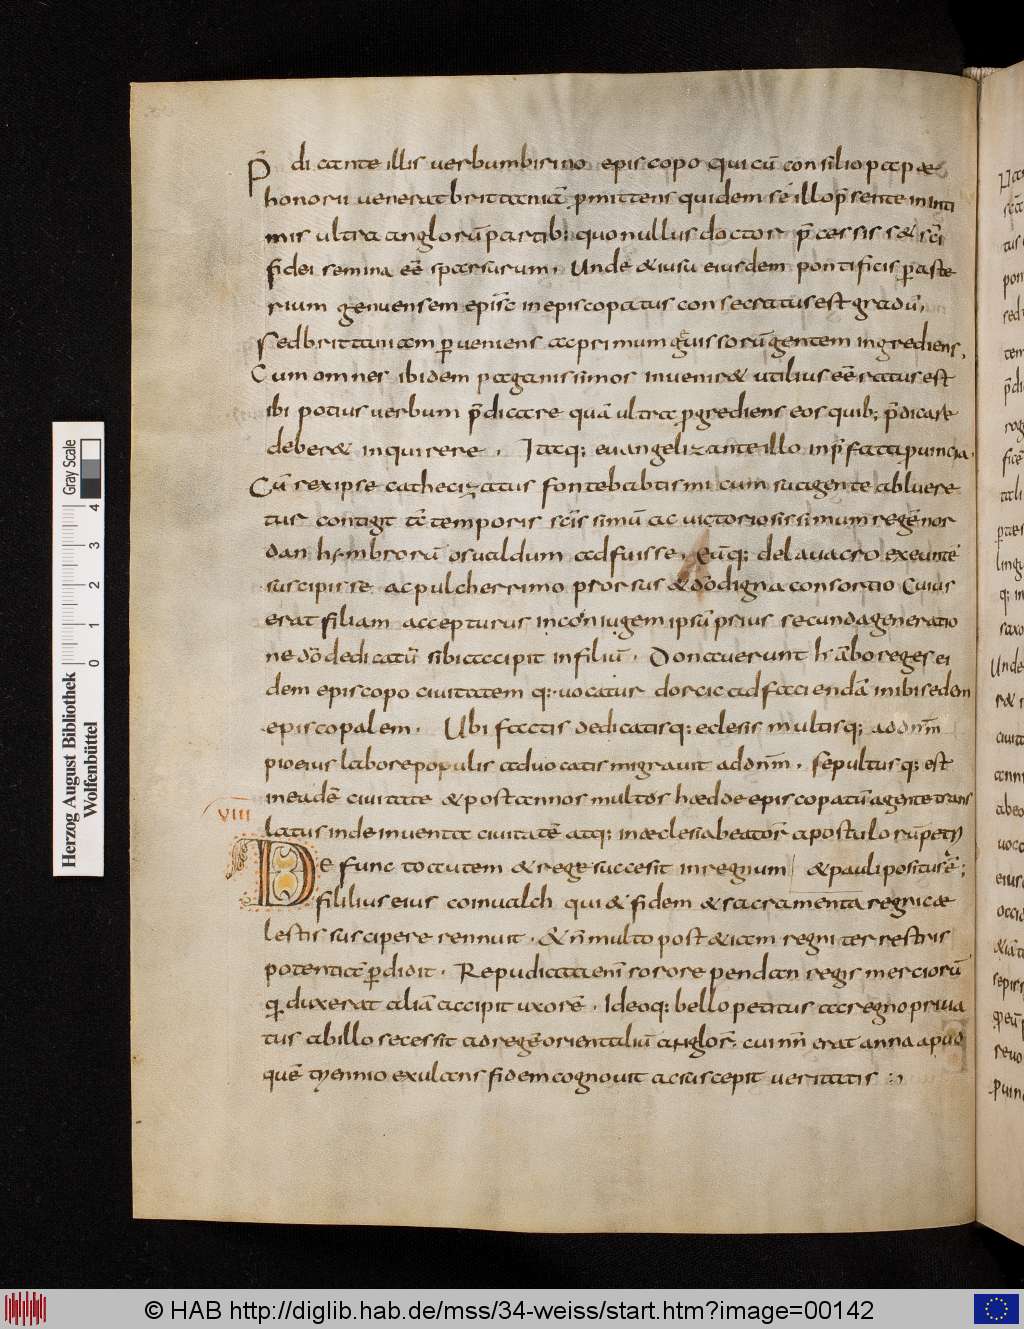 P̄dicante illis verbum birino episcopo qui cū consilio papae
honorii venerat brittaniā pmittens quidem sé illo p̄sente in inti
mis ultra anglorū partib; quo nullus doctor p̄cessis s& sc̄i
fidei semina eē sparsurum. Unde & iusu eiusdem pontificis p asте
rium genuensem epīsc in episcopatus consecratus est gradū.
Sed brittaniam perveniens ac primum gǔissorū gentem ingrediens,
Cum omnes ibidem paganissimos invenir& utilius eē ratus est
ibi potius verbum p̄dicare quā ultra pgrediens eos quib; p̄dicare
deber& inquirere . Itaq; euangelizante illo in p̄fata puincia.
Cū rex ipse cathecizatus fonte babtismi cum sua gente abluere
tur contigit tc̄ temporis sc̄issimū ac victoriosissimum regē nor
dan hymbrorū osualdum adfuisse, eūq; de lavacro exeuntē
suscipisse ac pulcherrimo prorsus & dō digna consortio Cuius
erat filiam accepturus in coniugem ipsū prius secunda generatio
ne dō dedicatū sibi accipit in filiū . Donaverunt h ābo reges ei
dem episcopo civitatem q; vocatur dorcic ad faciendā inibi sedem
episcopalem . Ubi factis dedicatisq; eclesis multisq; ad dnm̄
pio eius labore populis advocatis migravit ad dnm̄ . sepultusq; est
in eadē civitate & post annos multos haedde episcopatū agente trans
VIII
latus inde in venta civitatē atq; in aeclesia beatorū apostolorū petri
& pauli positus ē;
Defuncto autem & rege successit in regnum
fililius eius coinualch qui & fidem & sacramenta regni cae
lestis suscipere rennuit . & n̄ multo post & iam regni terrestris
potentiā pdidit . Repudiata enī sorore pendan regis merciorū
q̄ duxerat aliā accipit uxorē . Ideoq; bello petitus ac regno priva
tus ab illo secessit ad regē orientaliū anglor̄. cui nn̄ erat anna apud
quē tyennio exulans fidem cognovit ac suscepit veritatis
Herzog August Bibliothek
Wolfenbüttel
0 1 2 3 4
Gray Scale
© HAB http://diglib.hab.de/mss/34-weiss/start.htm?image=00142